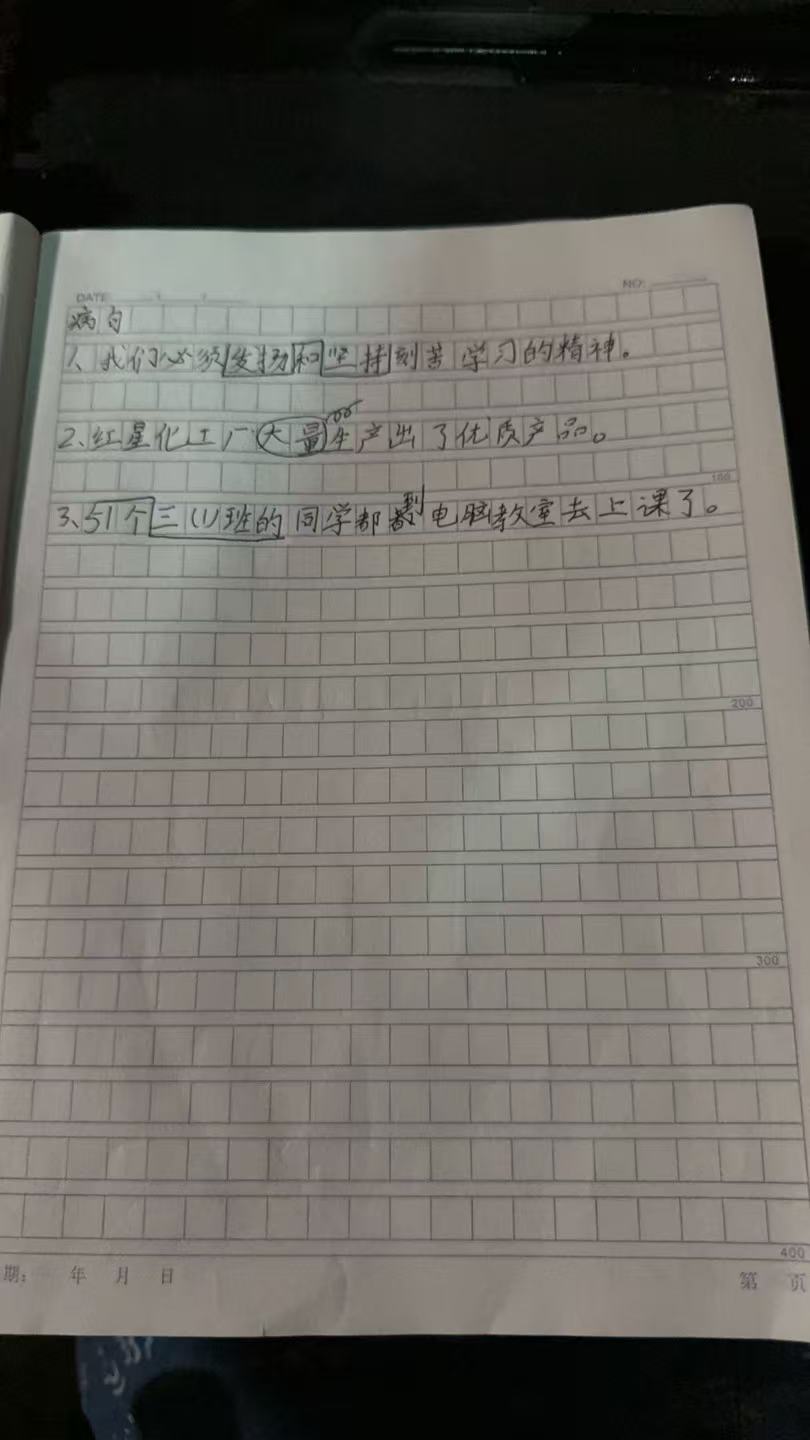 DATE
NO:
病句
1、我们必须发扬和坚持刻苦学习的精神。
2、红星化工厂大量生产出了优质产品。
100
3、51个三(1)班的同学都到电脑教室去上课了。
200
300
400
期: 年 月 日
第 页